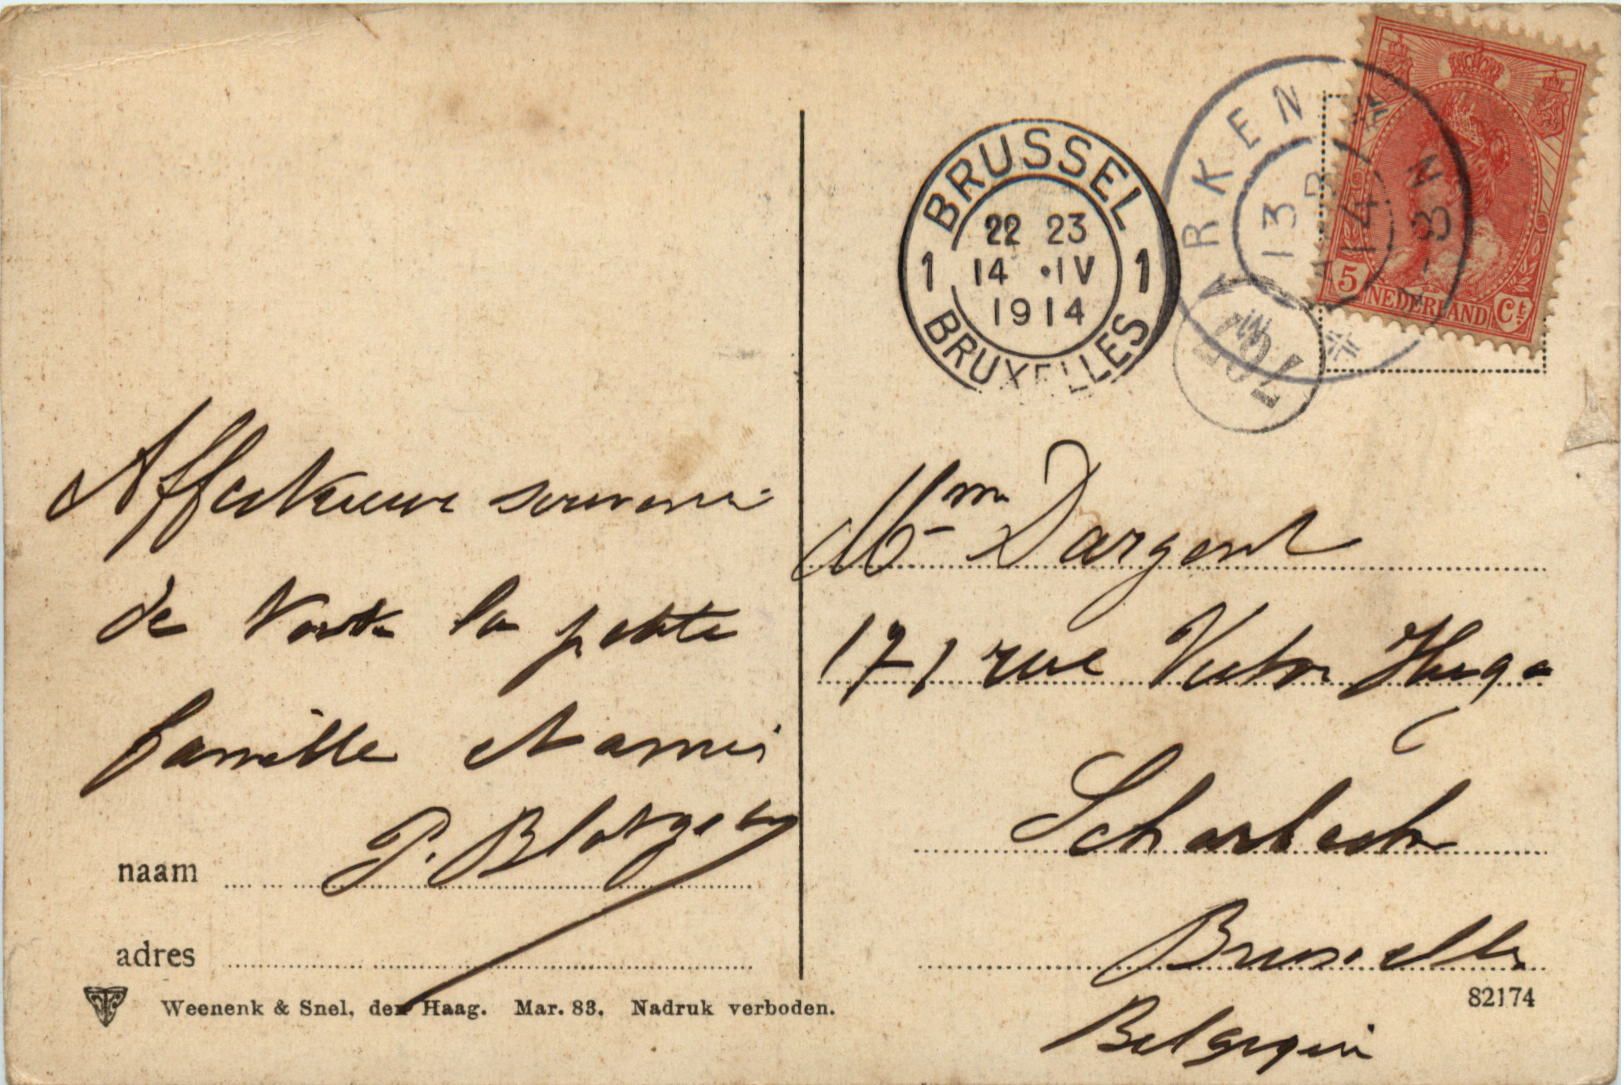 Affectueux souvenir
de toute la petite
famille et amis
P.
naam
adres
Weenenk & Snel, den Haag. Mar. 83. Nadruk verboden.
BRUSSEL
22 23
1 14 · IV 1
1914
BRUXELLES
RKEN
13
14
8-N
5 NEDERLAND Ct
Mme Dargent
171 rue Victor Hugo
Scharbeek
Bruxelles
Belgique
82174